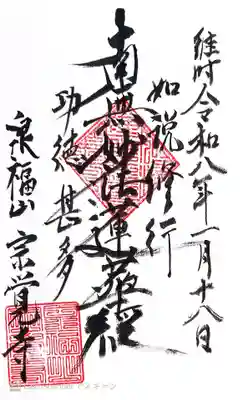 維時令和八年一月十八日
如説修行
南無妙法蓮華経
功徳甚多
泉福山 宗覚寺